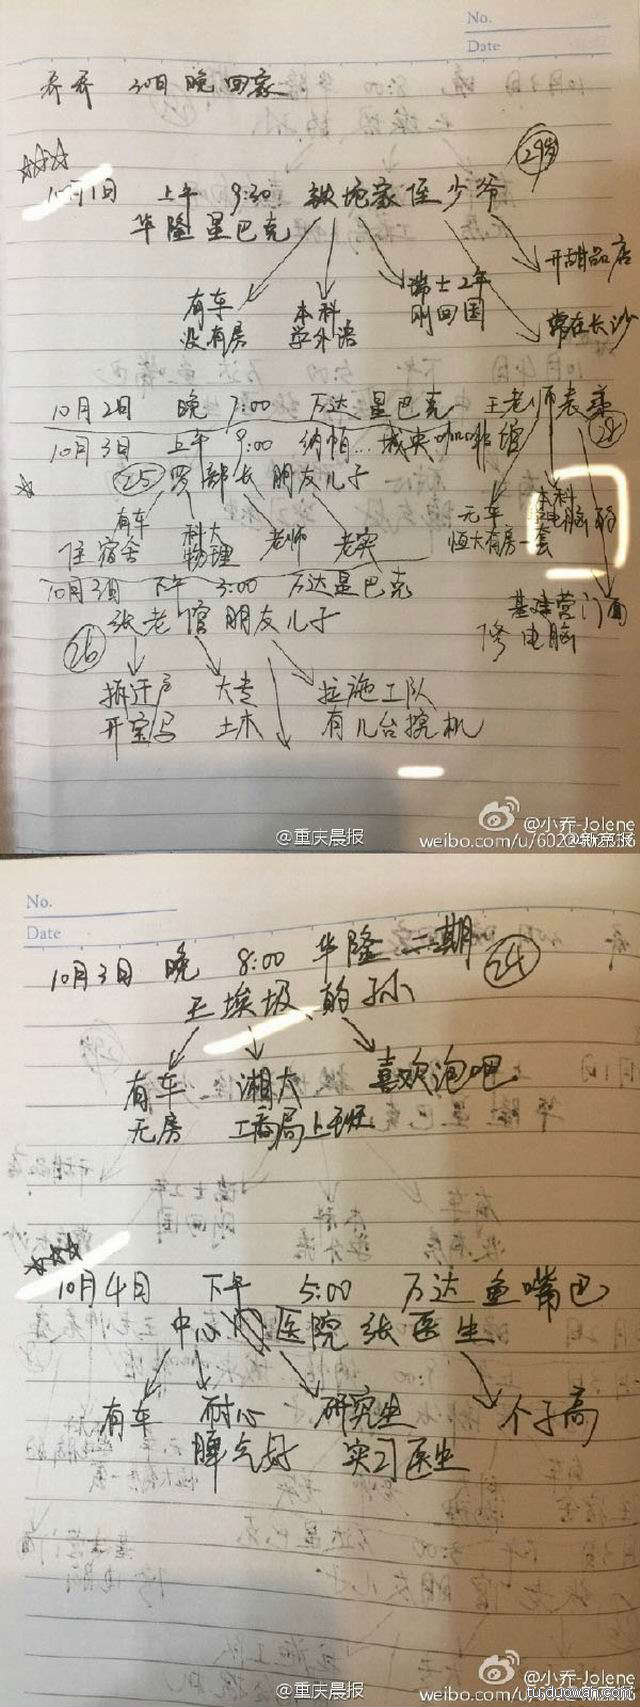 No.
Date
乔乔 30日 晚 回家
29岁
10月1日 上午 9:30 铁坨家侄少爷
华隆星巴克
有车
没有房
本科
学外语
瑞士2年
刚回国
开甜品店
常在长沙
10月2日 晚 7:00 万达星巴克 王老师表亲
28
10月3日 上午 9:00 纳帕...城央咖啡馆
25 罗部长朋友儿子
有车
住宿舍
科大
物理
老师
老实
无车
恒大有房一套
本科
学电脑的
基建营门面
修电脑
10月3日 下午 3:00 万达星巴克
张老倌朋友儿子
26
拆迁户
开宝马
大专
土木
拉施工队
有几台挖机
@重庆晨报
@小乔-Jolene
@新京报
No.
Date
10月3日 晚 8:00 华隆二期
24
王埃圾的孙
有车
无房
湘大
工商局上班
喜欢泡吧
10月4日 下午 5:00 万达鱼嘴巴
中心医院张医生
有车
耐心
脾气好
研究生
实习医生
个子高
@重庆晨报
@小乔-Jolene